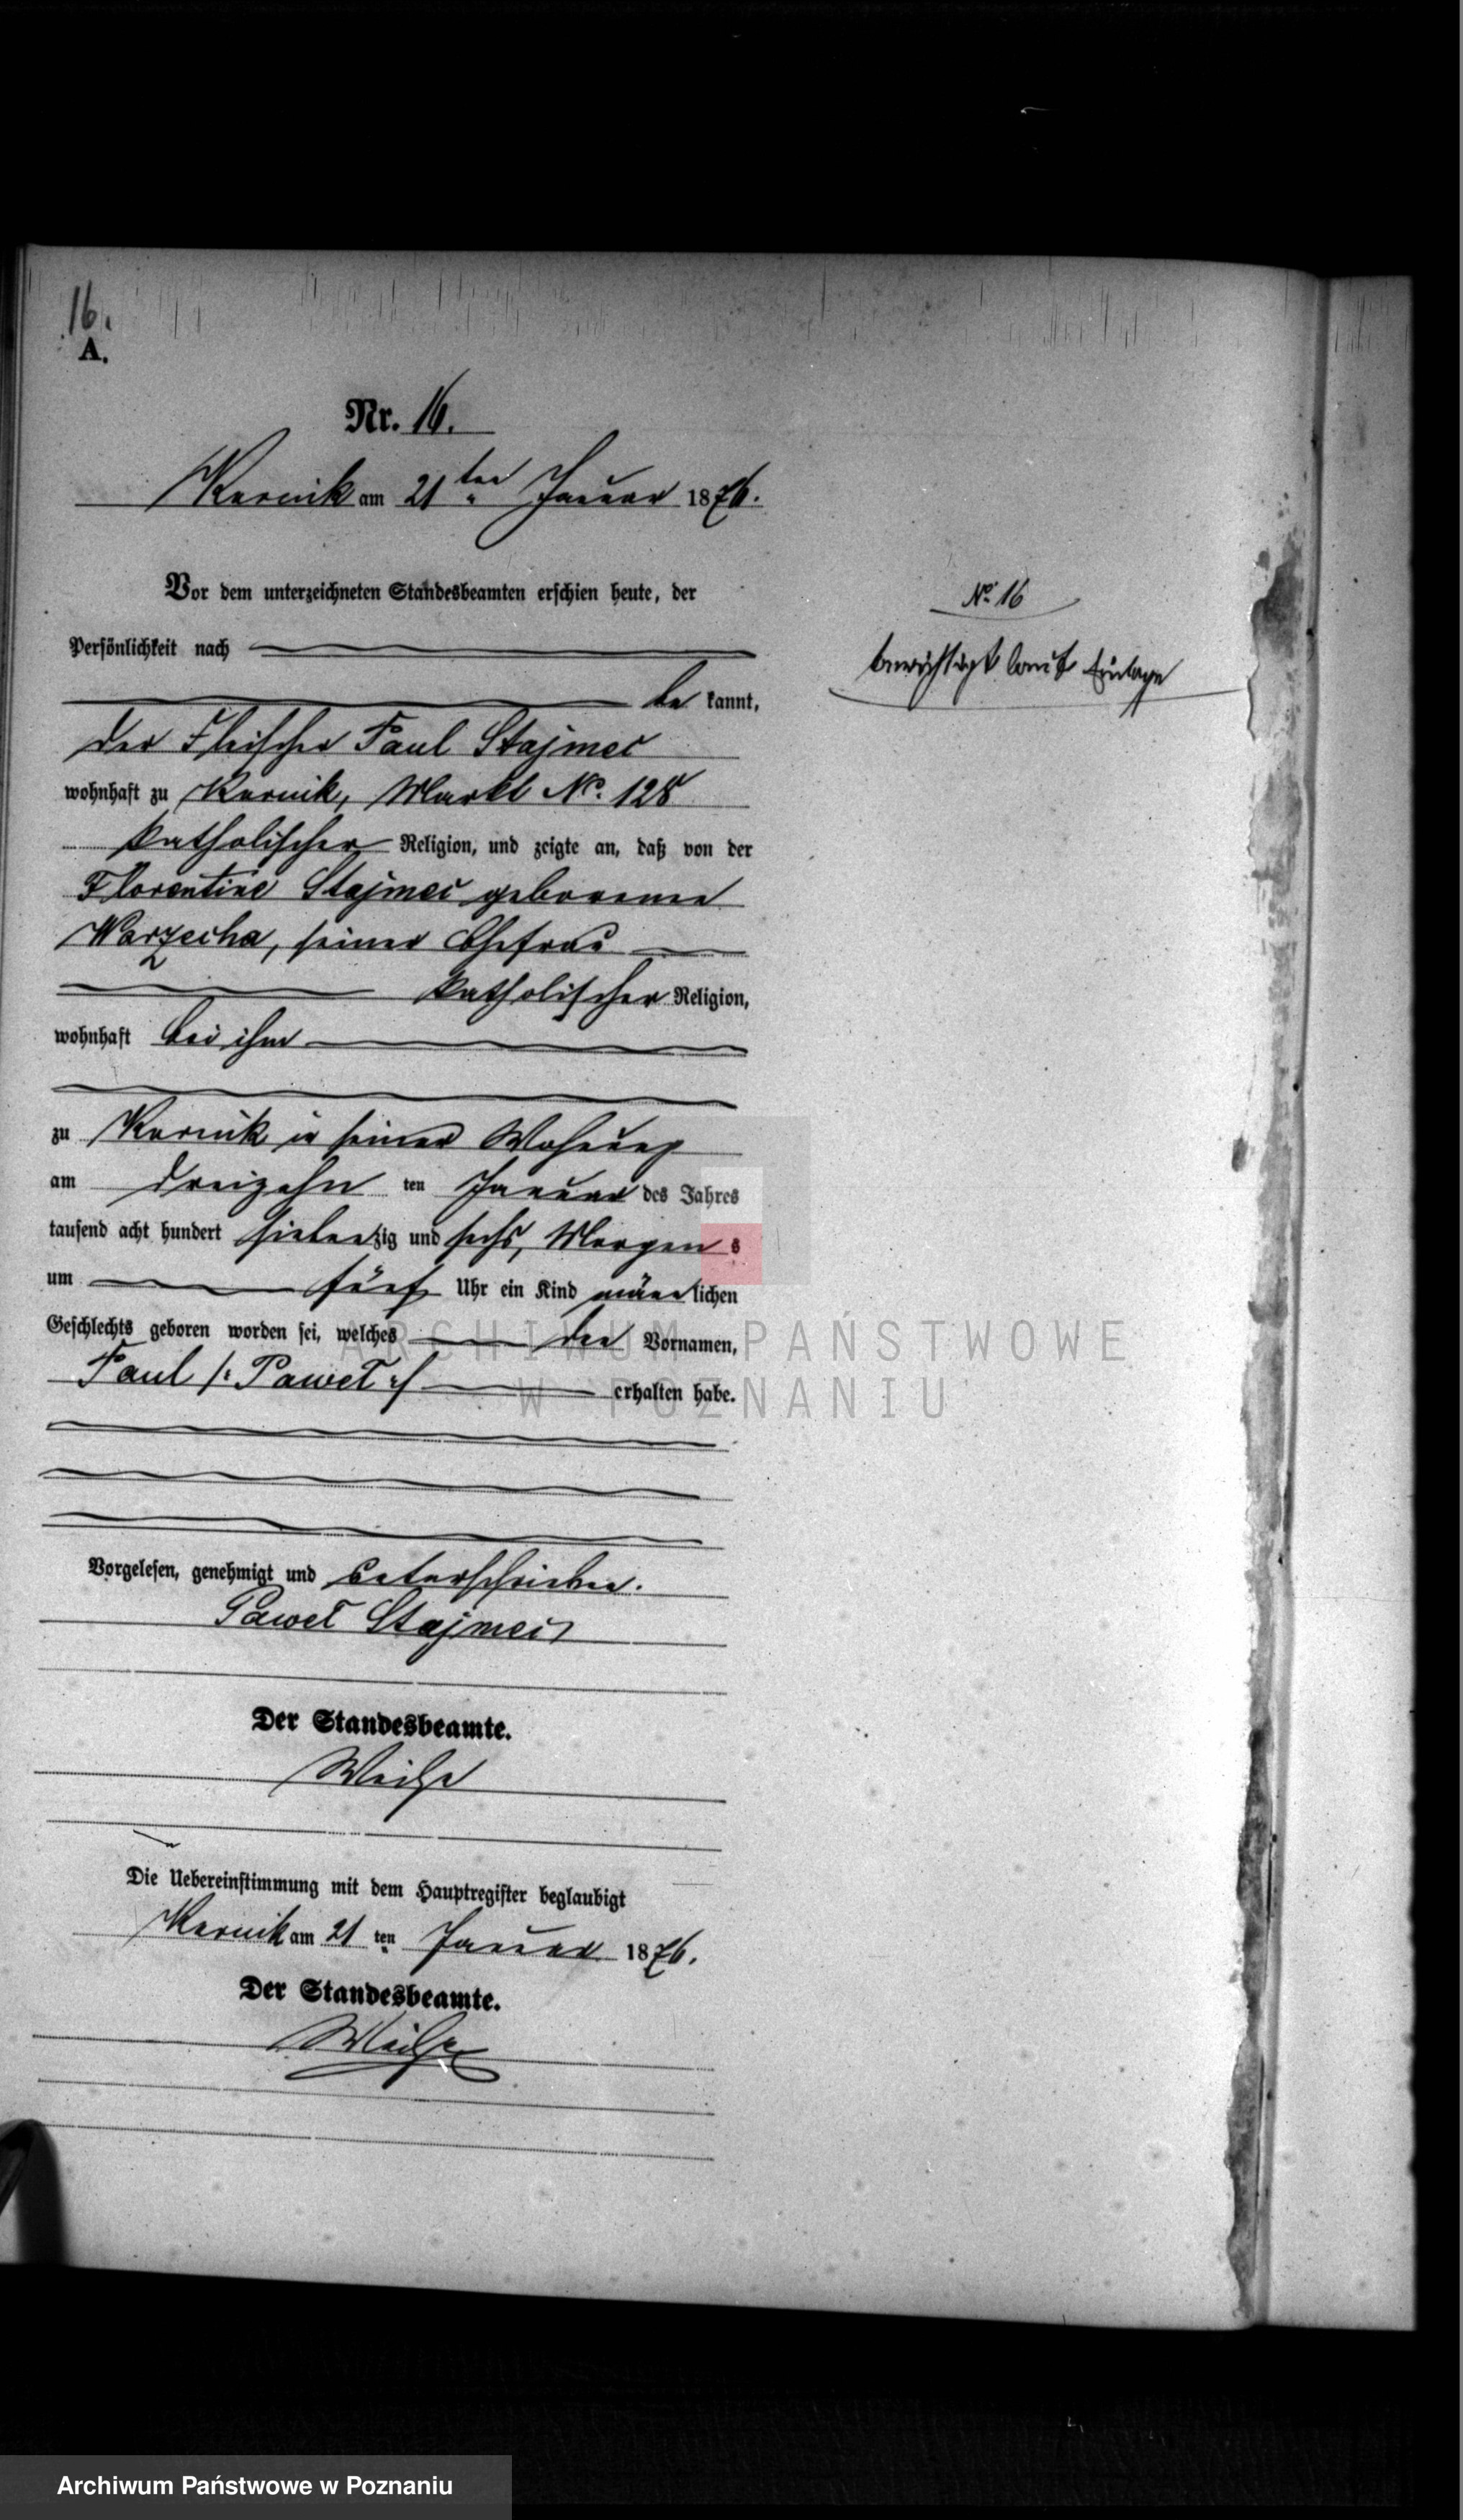 16.
A.
Nr. 16.
Kurnik am 21ten Januar 1876.
Vor dem unterzeichneten Standesbeamten erschien heute, der
Persönlichkeit nach
be kannt,
der Fleischer Paul Stajmer
wohnhaft zu Kurnik, Markt No. 128
katholischer Religion, und zeigte an, daß von der
Florentine Stajmer geborenen
Warzecha, seiner Ehefrau
katholischer Religion,
wohnhaft bei ihm
zu Kurnik in seiner Wohnung
am dreizehn ten Januar des Jahres
tausend acht hundert siebenzig und sechs, Morgen s
um fünf Uhr ein Kind männlichen
Geschlechts geboren worden sei, welches den Vornamen,
Paul /: Paweł :/ erhalten habe.
Vorgelesen, genehmigt und unterschrieben.
Paweł Stajmer
Der Standesbeamte.
Die Uebereinstimmung mit dem Hauptregister beglaubigt
Kurnik am 21 ten Januar 1876.
Der Standesbeamte.
No 16
berichtigt laut Einlage
ARCHIWUM PAŃSTWOWE
W POZNANIU
Archiwum Państwowe w Poznaniu